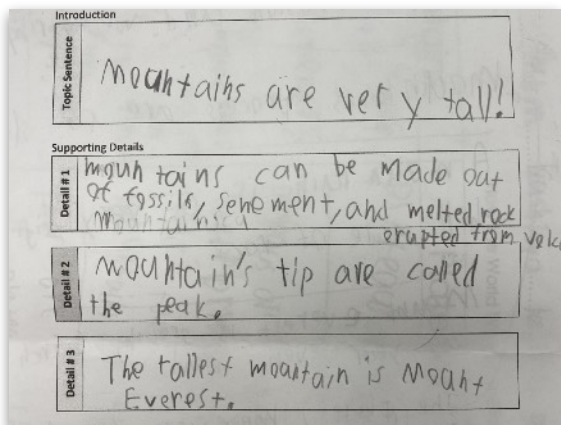 Introduction
Topic Sentence
Mountains are very tall!
Supporting Details
Detail # 1
mountains can be made out
of fossils, senement, and melted rock
erupted from
Detail # 2
mountain's tip are called
the peak.
Detail # 3
The tallest mountain is Mount
Everest.